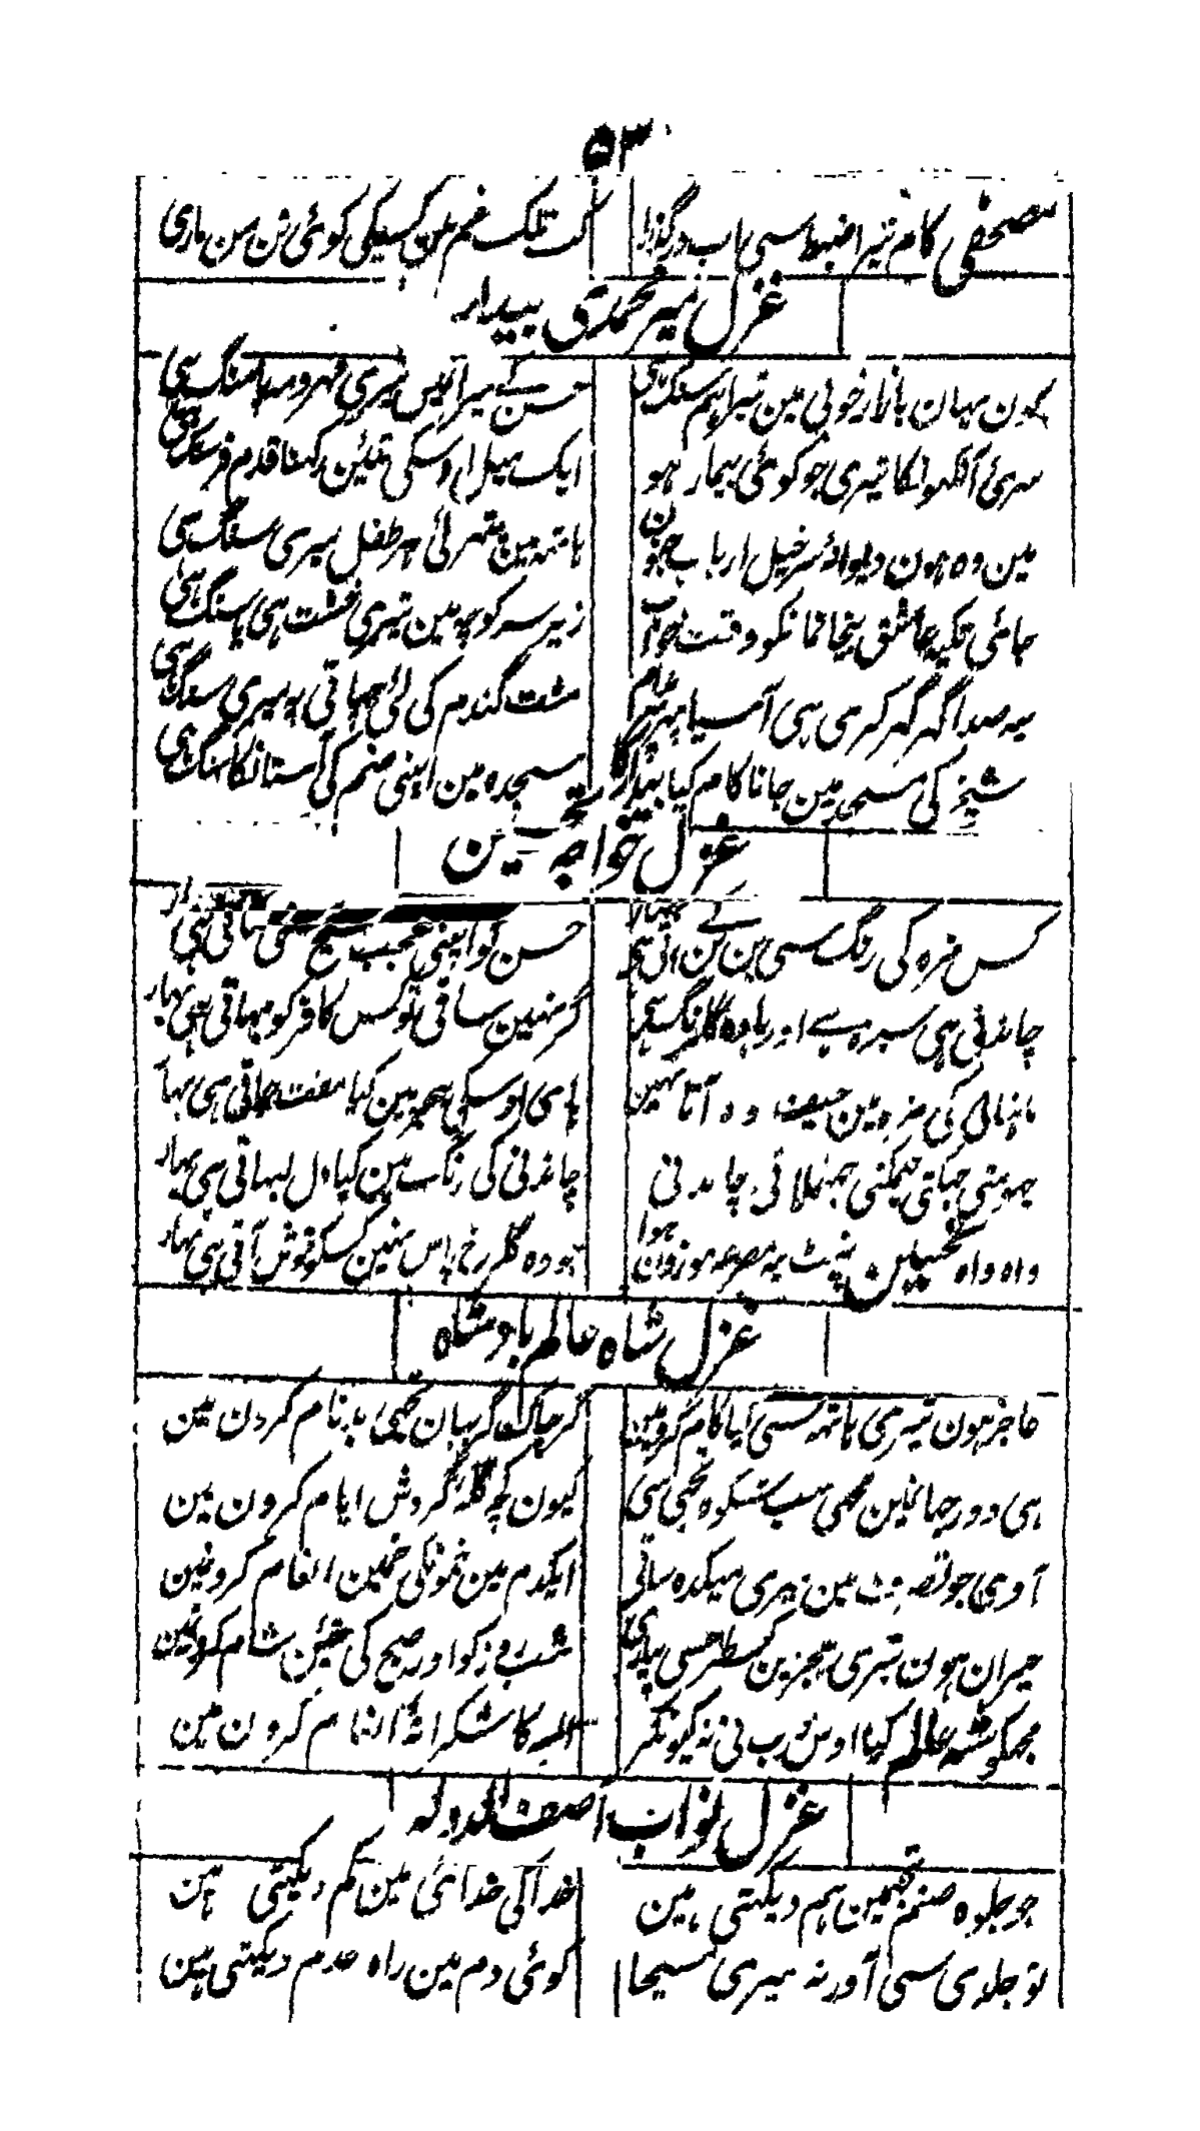 ۵۳
مصحفی کام تیرا ضبط سی اب در گذرا
کب تلک غم مین کسیکی کوئی تن من ماری
غزل میر محمدی بیدار
یہان بازار خوبی مین تیرا ہم سنگ ہی
حسن کے میزان مین تیری مہر و مہ پاسنگ ہی
سرئ آنکہونکا تیری جو کوئی بیمار ہو
ایک میل اوسکی تئین رکہنا قدم فرسنگ ہی
مین وہ ہون دیوانۂ سرخیل ارباب جنون
ہاتہہ مین پتہر لئی ہر طفل میری سنگ ہی
جائی تکیہ عاشق بیخانمانکو وقت خواب
زیر سر کوچہ مین تیری خشت ہی یا سنگ ہی
یہ صدا گہر گہر کری ہی آسیا پہر
مشت گندم کی لئی چہاتی پہ میری سنگ ہی
شیخ کی مسجد مین جانا کام کیا بیدار کا
سجدہ مین اپنی صنم کی آستانکا سنگ ہی
غزل خواجہ تحسین
کس مزہ کی رنگ سی بن ٹن کے آتی ہی بہار
حسن کو اپنی عجب سج
چاندنی ہی سبزہ ہے اور بادہ گلرنگ ہی
گر نہین ساقی تو کس کافر کو بہاتی ہی بہار
کی مزہ مین حیف وہ آتا نہین
ہای اوسکی ہجر مین کیا مفت جاتی ہی بہار
چمکتی جہلملاتی چاندنی
چاندنی کی رنگ مین کیا دل لبہاتی ہی بہار
واہ واہ تحسین نپٹ یہ مصرعہ موزون ہوا
ہو وہ گلرخ پاس نہین کسکو خوش آتی ہی بہار
غزل شاہ عالم بادشاہ
عاجز ہون تیری ہاتہہ سی کیا کام کرون مین
کر چاک گریبان تجہی بدنام کرون مین
ہی دور جہانمین مجہی سب شکوہ تجہی سی
کیون کچہ گلہ گردش ایام کرون مین
آوی جو تصرف مین میری میکدہ ساقی
ایکدم مین خمونکی خمین انعام کرون مین
حیران ہون تیری ہجر مین کسطرحسی پیاری
شب روز کو اور صبح کی تئین شام کرون مین
مجہکو شہ عالم کیا اوس رب نی نہ کیونکر
اللہ کا شکرانہ انعام کرون مین
غزل نواب آصف الدولہ
جو جلوہ صنم تجہمین ہم دیکہتی ہین
خدا کی خدائی مین کم دیکہتی ہین
تو جلدی سی آ ورنہ میری مسیحا
کوئی دم مین راہ عدم دیکہتی ہین